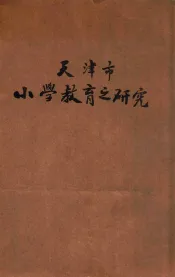 天津市
小學教育之研究